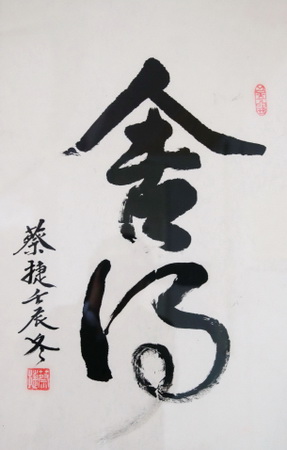 舍得
蔡捷壬辰冬